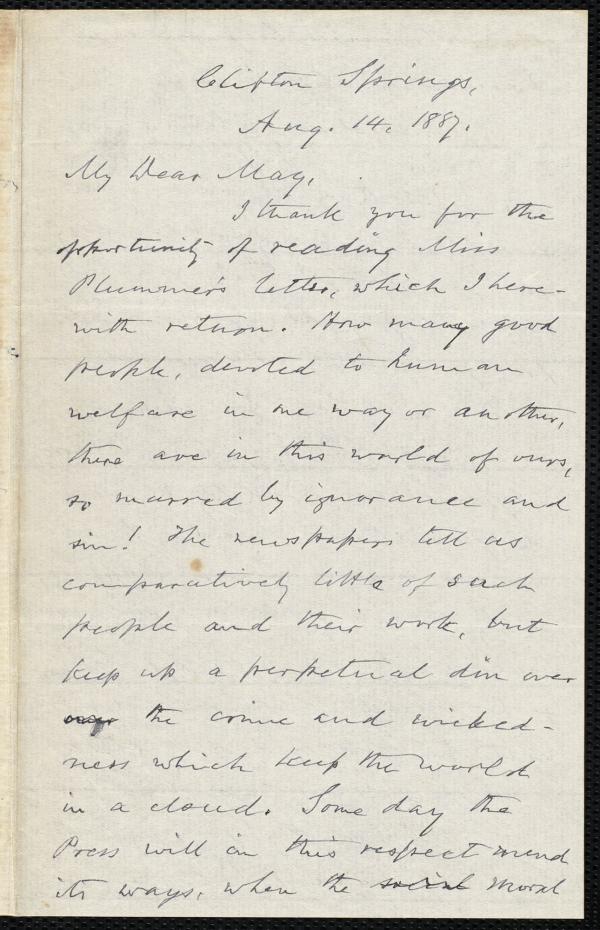 Clifton Springs,
Aug. 14, 1887.
My Dear May,
I thank you for the
opportunity of reading Miss
Plummer's letter, which I here-
with return. How many good
people, devoted to human
welfare in one way or another,
there are in this world of ours,
so marred by ignorance and
sin! The newspapers tell us
comparatively little of such
people and their work, but
keep up a perpetual din over
the crime and wicked-
ness which keep the world
in a cloud. Some day the
Press will in this respect mend
its ways, when the social moral